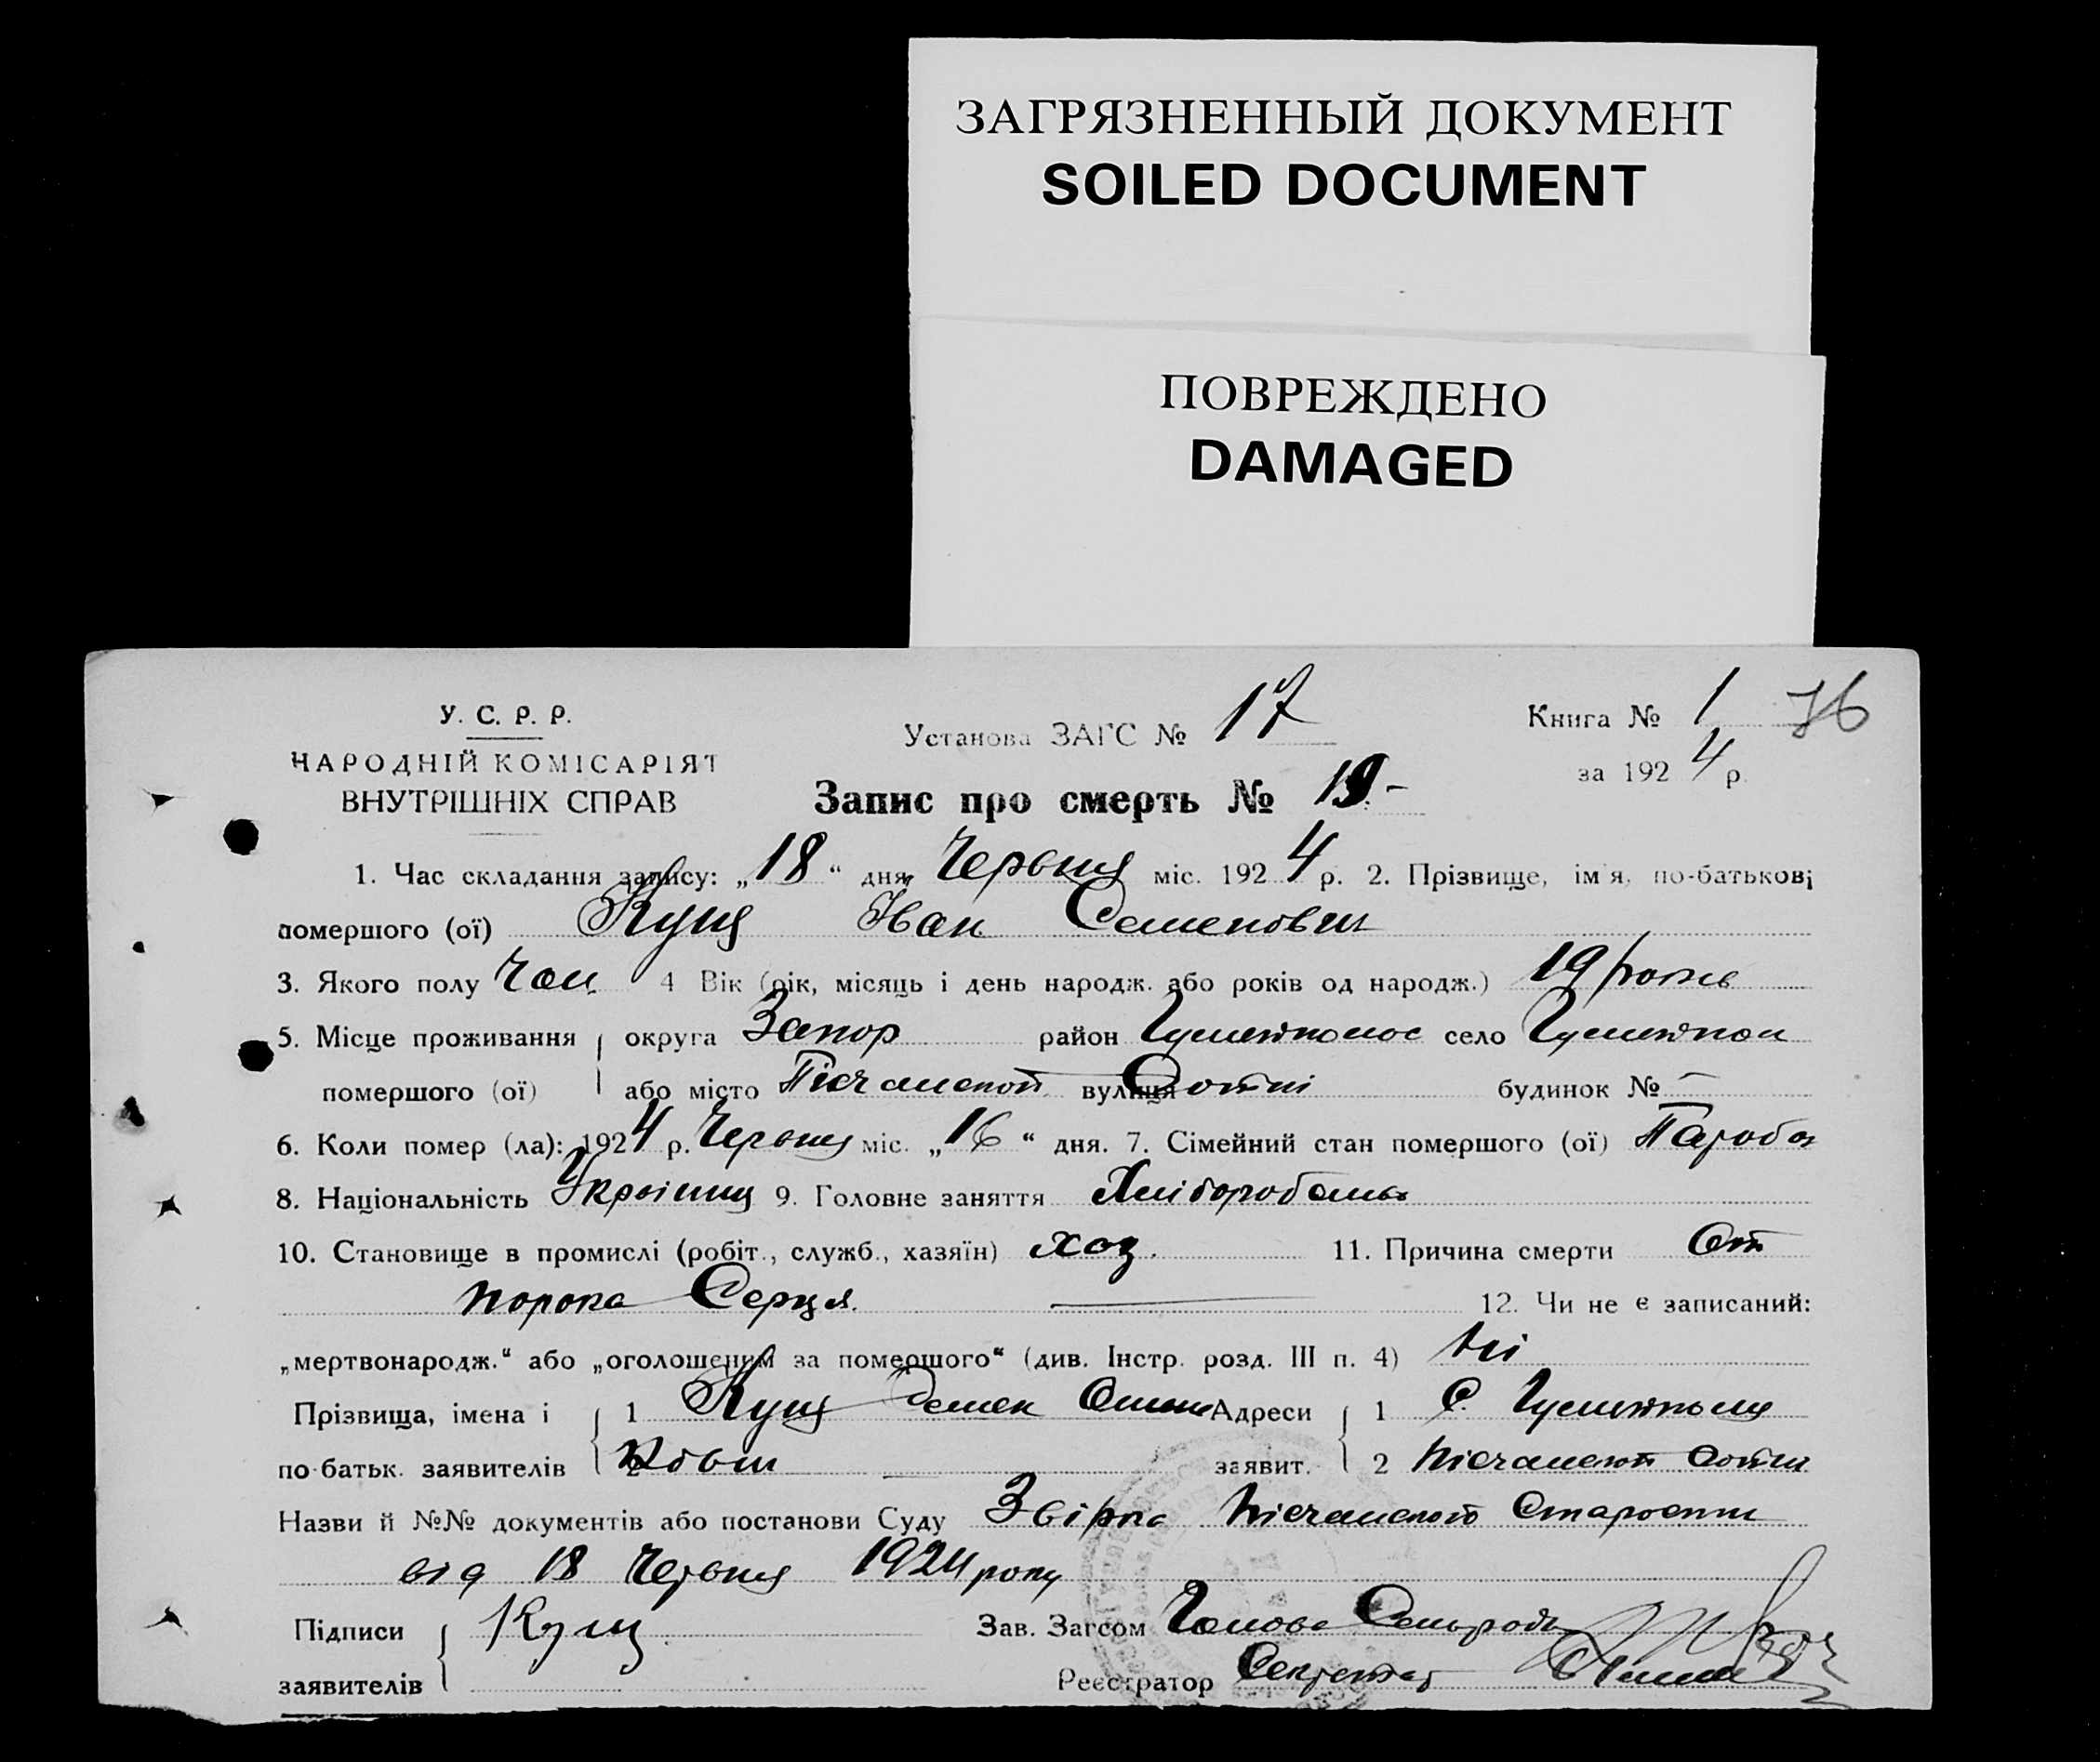 ЗАГРЯЗНЕННЫЙ ДОКУМЕНТ
SOILED DOCUMENT
ПОВРЕЖДЕНО
DAMAGED
У. С. Р. Р.
НАРОДНІЙ КОМІСАРІЯТ
ВНУТРІШНІХ СПРАВ
Установа ЗАГС № 17
Книга № 1 76
за 1924 р.
Запис про смерть № 19.-
1. Час складання запису: „18“ дня Червня міс. 1924 р. 2. Прізвище, ім'я, по-батькові
помершого (ої) Кущ Іван Семенович
3. Якого полу Чол. 4 Вік (рік, місяць і день народж. або років од народж.) 19 років
5. Місце проживання округа Запор район Гуляйпольс село Гуляйполя
помершого (ої) або місто Пісчанской вулиця Сотні будинок № —
6. Коли помер (ла): 1924 р. Червня міс. „16“ дня. 7. Сімейний стан помершого (ої) Паробок
8. Національність Україниц 9. Головне заняття Хліборобство
10. Становище в промислі (робіт., служб., хазяїн) хоз. 11. Причина смерти От
порока Серця. 12. Чи не є записаний:
„мертвонародж.“ або „оголошеним за помершого“ (див. Інстр. розд. III п. 4) Ні
Прізвища, імена і 1 Кущ Семен Адреси 1 С. Гуляйполя
по-батьк. заявителів 2 заявит. 2 Пісчанской Сотні
Назви й №№ документів або постанови Суду Звірка Пісчанского Старости
від 18 Червня 1924 року
Підписи Кущ Зав. Загсом Голова Сельради
заявителів Реєстратор Секретар